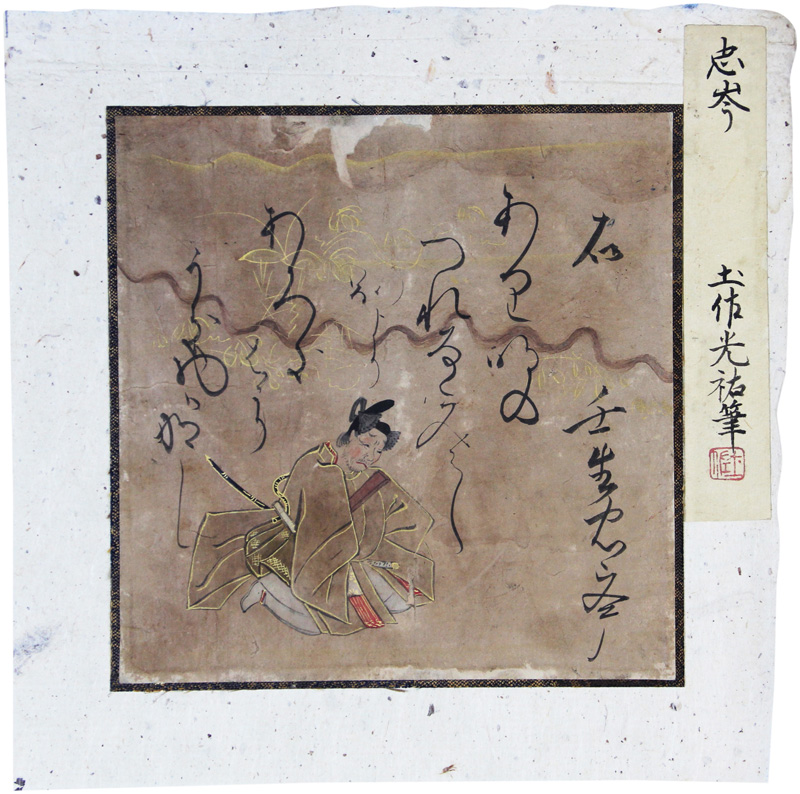 忠岑　土佐光祐筆
右
壬生忠岑
あり明の
つれなくみえし
わかれより
あかつき
はかり
うき物はなし